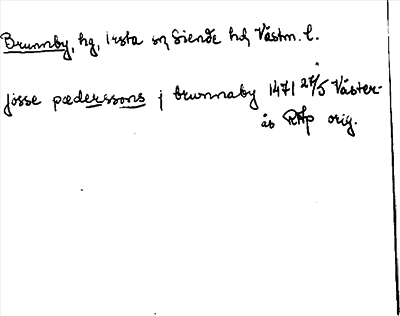 Brunnby, hg, Irsta sn Siende hd, Västm. l.
jösse pæderssons j brwnnaby 1471 27/5 Väster-
ås RAp orig.